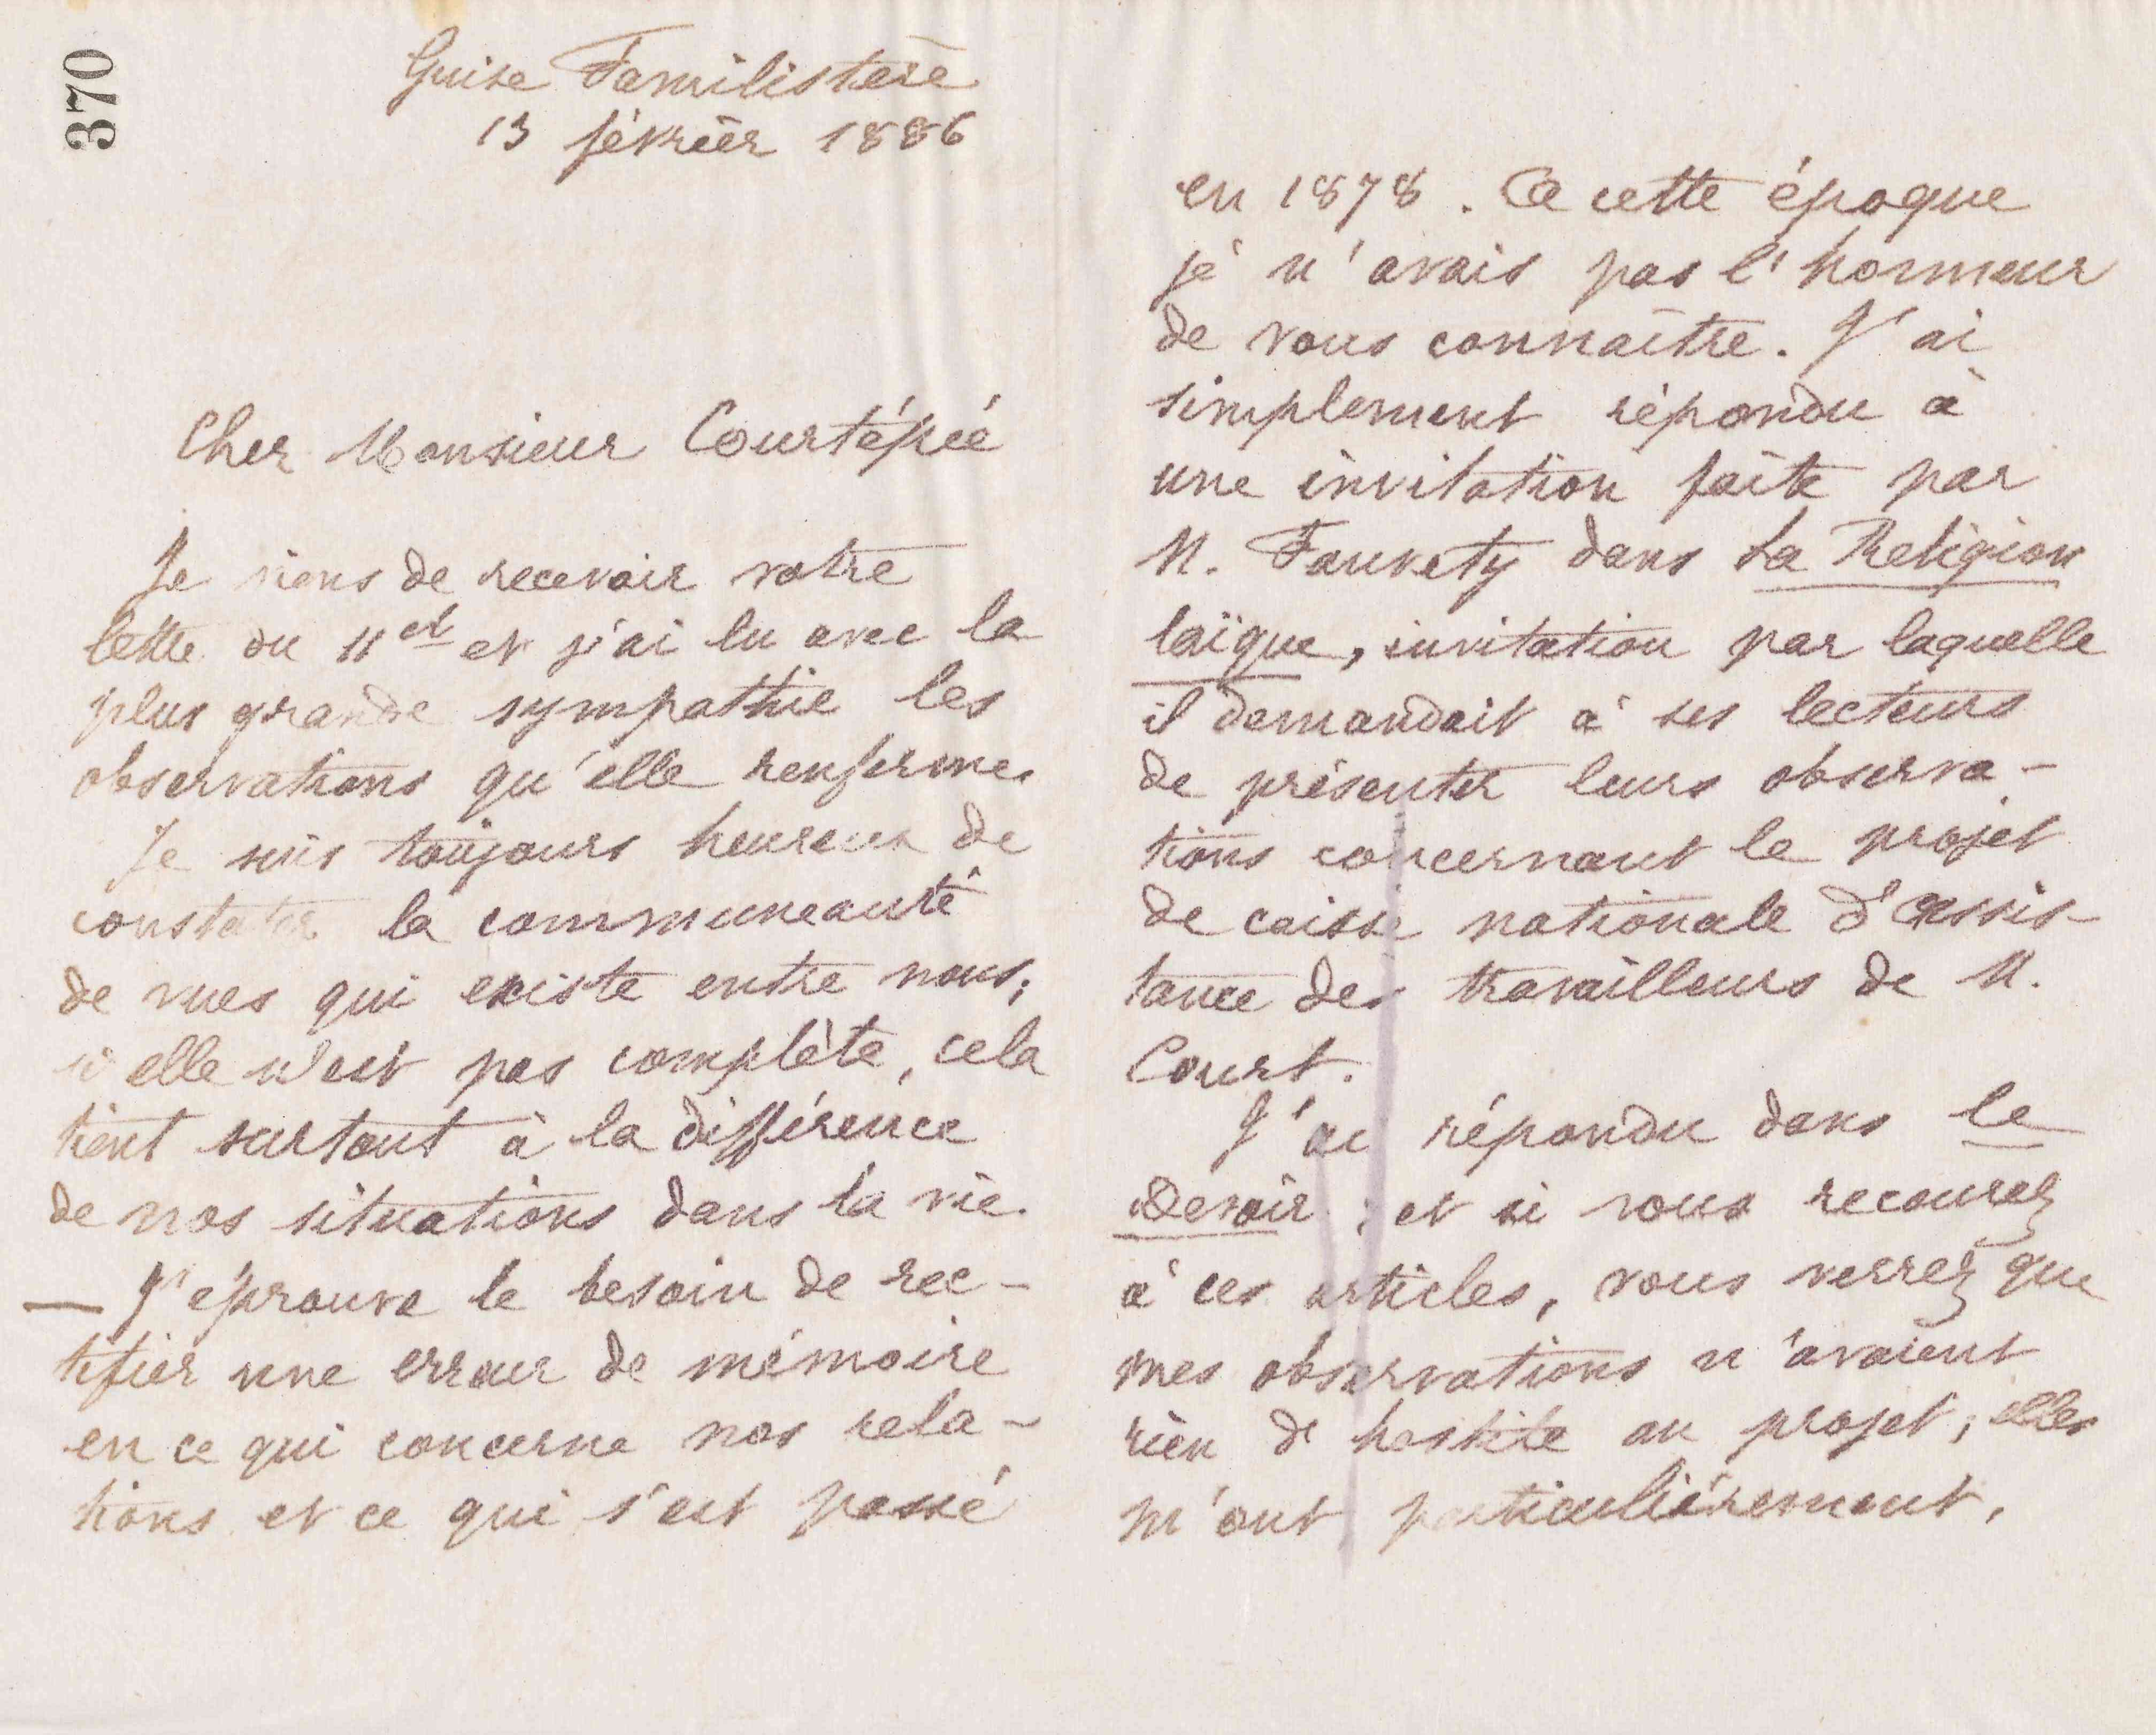 370
Guise Familistère
13 février 1886
Cher Monsieur Courtépée
Je viens de recevoir votre
lettre du 11 ct et j'ai lu avec la
plus grande sympathie les
observations qu'elle renferme.
Je suis toujours heureux de
constater la communeauté
de vues qui existe entre nous;
si elle n'est pas complète, cela
tient surtout à la différence
de nos situations dans la vie.
— J'éprouve le besoin de rec-
tifier une erreur de mémoire
en ce qui concerne nos rela-
tions et ce qui s'est passé
en 1878. A cette époque
je n'avais pas l'honneur
de vous connaître. J'ai
simplement répondu à
une invitation faite par
M. Fauvety dans La Religion
laïque, invitation par laquelle
il demandait à ses lecteurs
de présenter leurs observa-
tions concernant le projet
de caisse nationale d'assis-
tance des travailleurs de M.
Court.
J'ai répondu dans le
Devoir ; et si vous recourez
à ces articles, vous verrez que
mes observations n'avaient
rien de hostile au projet ; elles
m'ont particulièrement,